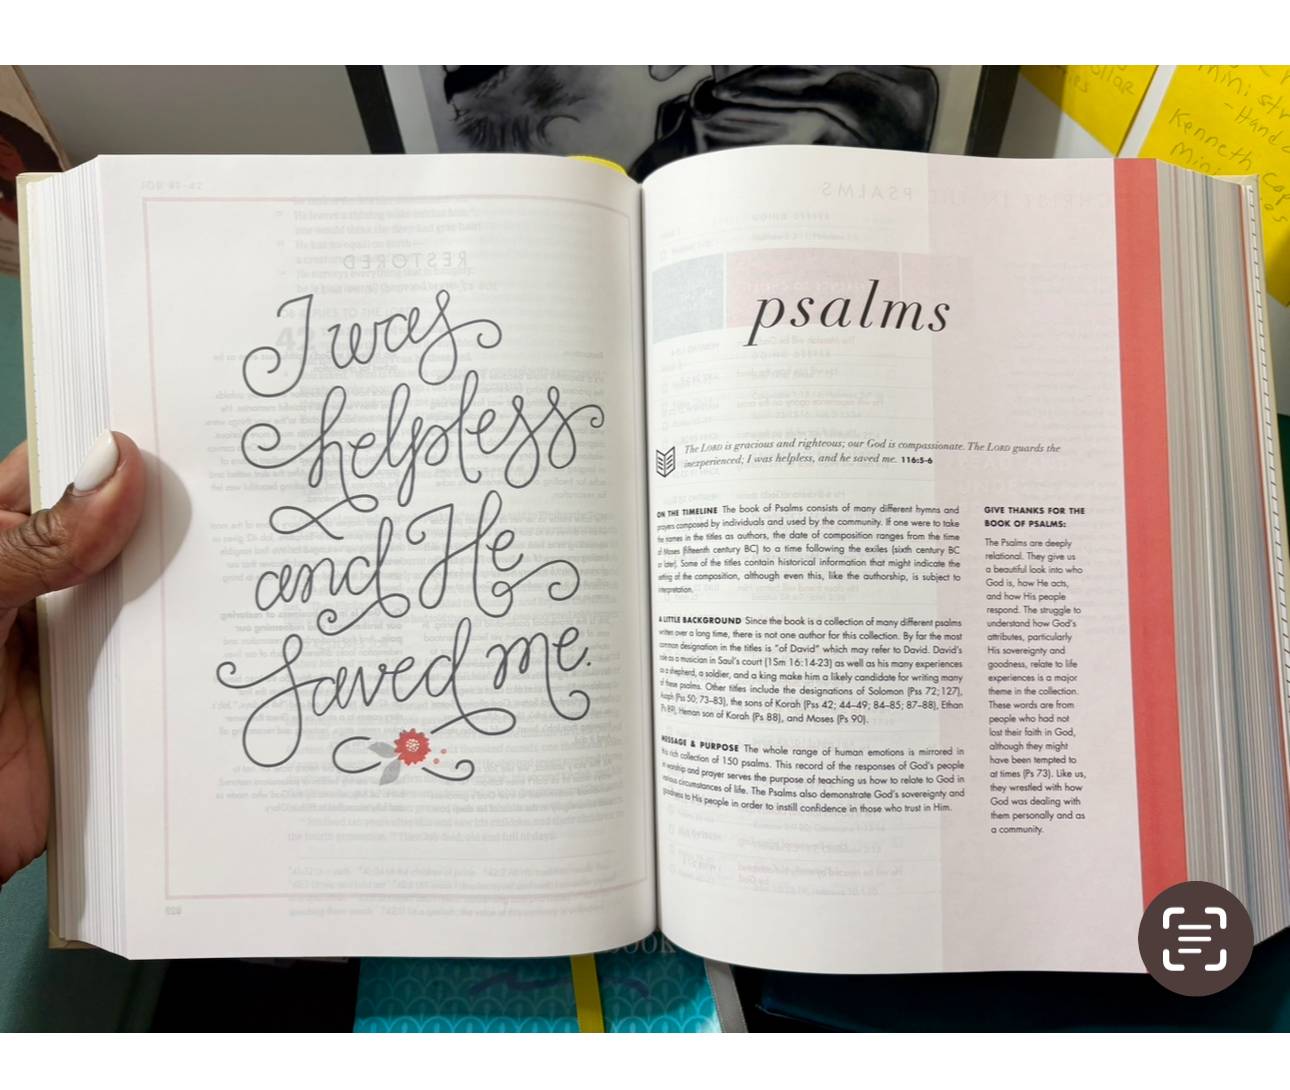 I was
helpless
and He
saved me.
psalms
The LORD is gracious and righteous; our God is compassionate. The LORD guards the
inexperienced; I was helpless, and he saved me. 116:5-6
ON THE TIMELINE The book of Psalms consists of many different hymns and
prayers composed by individuals and used by the community. If one were to take
the names in the titles as authors, the date of composition ranges from the time
of Moses (fifteenth century BC) to a time following the exiles (sixth century BC
or later). Some of the titles contain historical information that might indicate the
setting of the composition, although even this, like the authorship, is subject to
interpretation.
A LITTLE BACKGROUND Since the book is a collection of many different psalms
written over a long time, there is not one author for this collection. By far the most
common designation in the titles is "of David" which may refer to David. David's
role as a musician in Saul's court (1Sm 16:14-23) as well as his many experiences
as a shepherd, a soldier, and a king make him a likely candidate for writing many
of these psalms. Other titles include the designations of Solomon (Pss 72; 127),
Asaph (Pss 50; 73–83), the sons of Korah (Pss 42; 44–49; 84–85; 87–88), Ethan
(Ps 89), Heman son of Korah (Ps 88), and Moses (Ps 90).
MESSAGE & PURPOSE The whole range of human emotions is mirrored in
this rich collection of 150 psalms. This record of the responses of God's people
in worship and prayer serves the purpose of teaching us how to relate to God in
various circumstances of life. The Psalms also demonstrate God's sovereignty and
goodness to His people in order to instill confidence in those who trust in Him.
GIVE THANKS FOR THE
BOOK OF PSALMS:
The Psalms are deeply
relational. They give us
a beautiful look into who
God is, how He acts,
and how His people
respond. The struggle to
understand how God's
attributes, particularly
His sovereignty and
goodness, relate to life
experiences is a major
theme in the collection.
These words are from
people who had not
lost their faith in God,
although they might
have been tempted to
at times (Ps 73). Like us,
they wrestled with how
God was dealing with
them personally and as
a community.
Kenneth